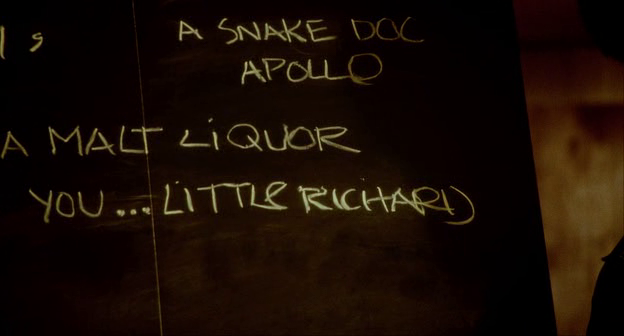 A SNAKE DOC
ls
APOLLO
A MALT LiQUOR
YOU... LiTTLE RICHARD